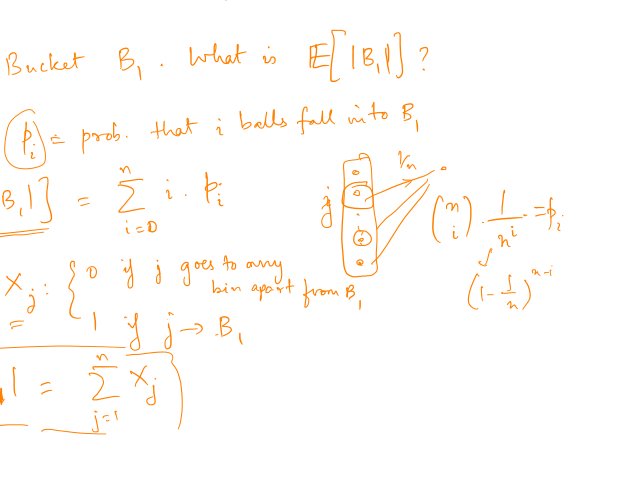 Bucket B_1 . What is E[|B_1|] ?
p_i = prob. that i balls fall into B_1
B_1|] = \sum_{i=0}^{n} i . p_i
j 1/n \binom{n}{i} . \frac{1}{n^i} . = p_i
(1 - \frac{1}{n})^{n-i}
X_j : { 0 if j goes to any bin apart from B_1
= 1 if j → B_1
| = \sum_{j=1}^{n} X_j